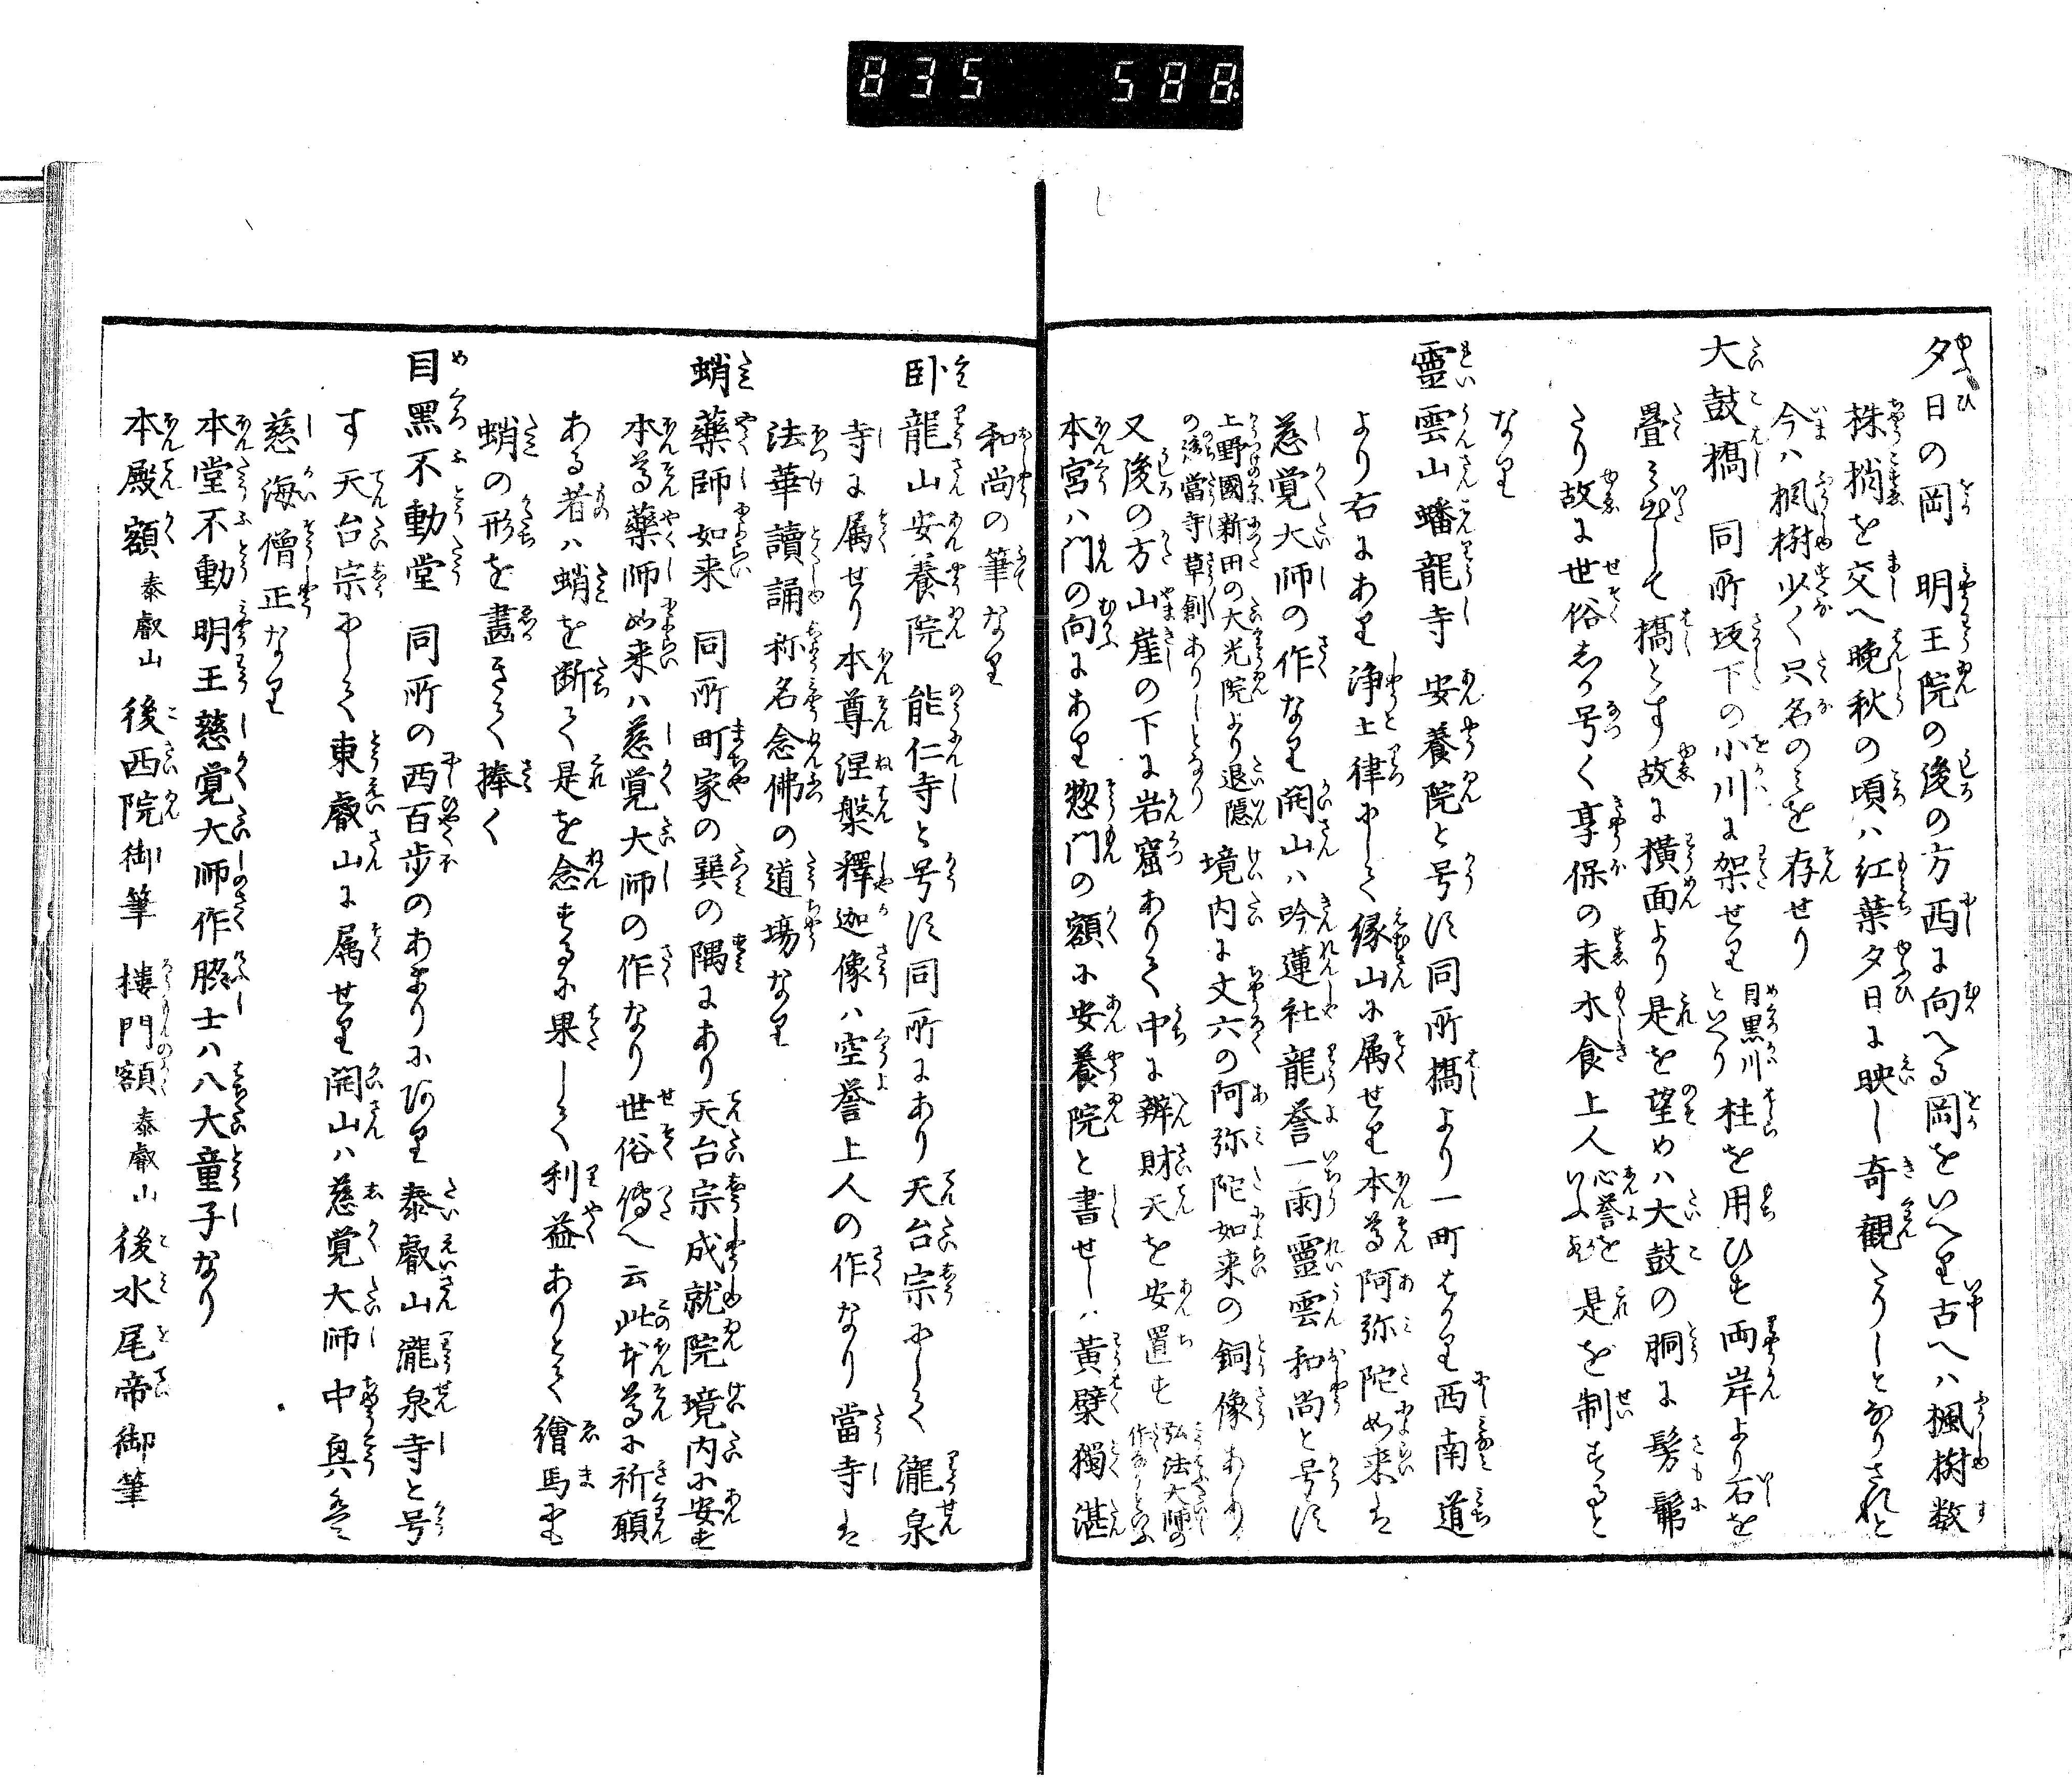 835 588
夕日の岡 明王院の後の方西に向へる岡をいへり古へハ楓樹数
株梢を交へ晩秋の頃ハ紅葉夕日に映し奇観たりしとなりされと
今ハ楓樹少く只名のミを存せり
大鼓橋 同所坂下の小川に架せり 目黒川といへり 柱を用ひす両岸より石を
畳ミ出して橋とす故に横面より是を望めハ大鼓の胴に髣髴
たり故に世俗しか号く享保の末木食上人 心誉といふ 是を制すると
なり
靈雲山蟠龍寺 安養院と号す同所橋より一町はかり西南道
より右にあり浄土律にして縁山に属せり本尊阿弥陀如来は
慈覚大師の作なり開山ハ吟蓮社龍誉一雨靈雲和尚と号す
上野國新田の大光院より退隠の後當寺草創ありしとなり 境内に丈六の阿弥陀如来の銅像あり
又後の方山崖の下に岩窟ありて中に辨財天を安置す 弘法大師の作なりといふ
本宮ハ門の向にあり惣門の額に安養院と書せしハ黄檗獨湛
和尚の筆なり
臥龍山安養院 能仁寺と号す同所にあり天台宗にして瀧泉
寺に属せり本尊涅槃釋迦像ハ空誉上人の作なり當寺は
法華讀誦称名念佛の道場なり
蛸藥師如来 同所町家の巽の隅にあり天台宗成就院境内に安す
本尊藥師如来ハ慈覚大師の作なり世俗傳へ云此本尊に祈願
ある者ハ蛸を断て是を念するに果して利益ありとて繪馬にも
蛸の形を畵きて捧く
目黒不動堂 同所の西百歩のあまりにあり泰叡山瀧泉寺と号
す天台宗にして東叡山に属せり開山ハ慈覚大師中興は
慈海僧正なり
本堂不動明王慈覚大師作脇士ハ八大童子なり
本殿額 泰叡山 後西院御筆 樓門額 泰叡山 後水尾帝御筆